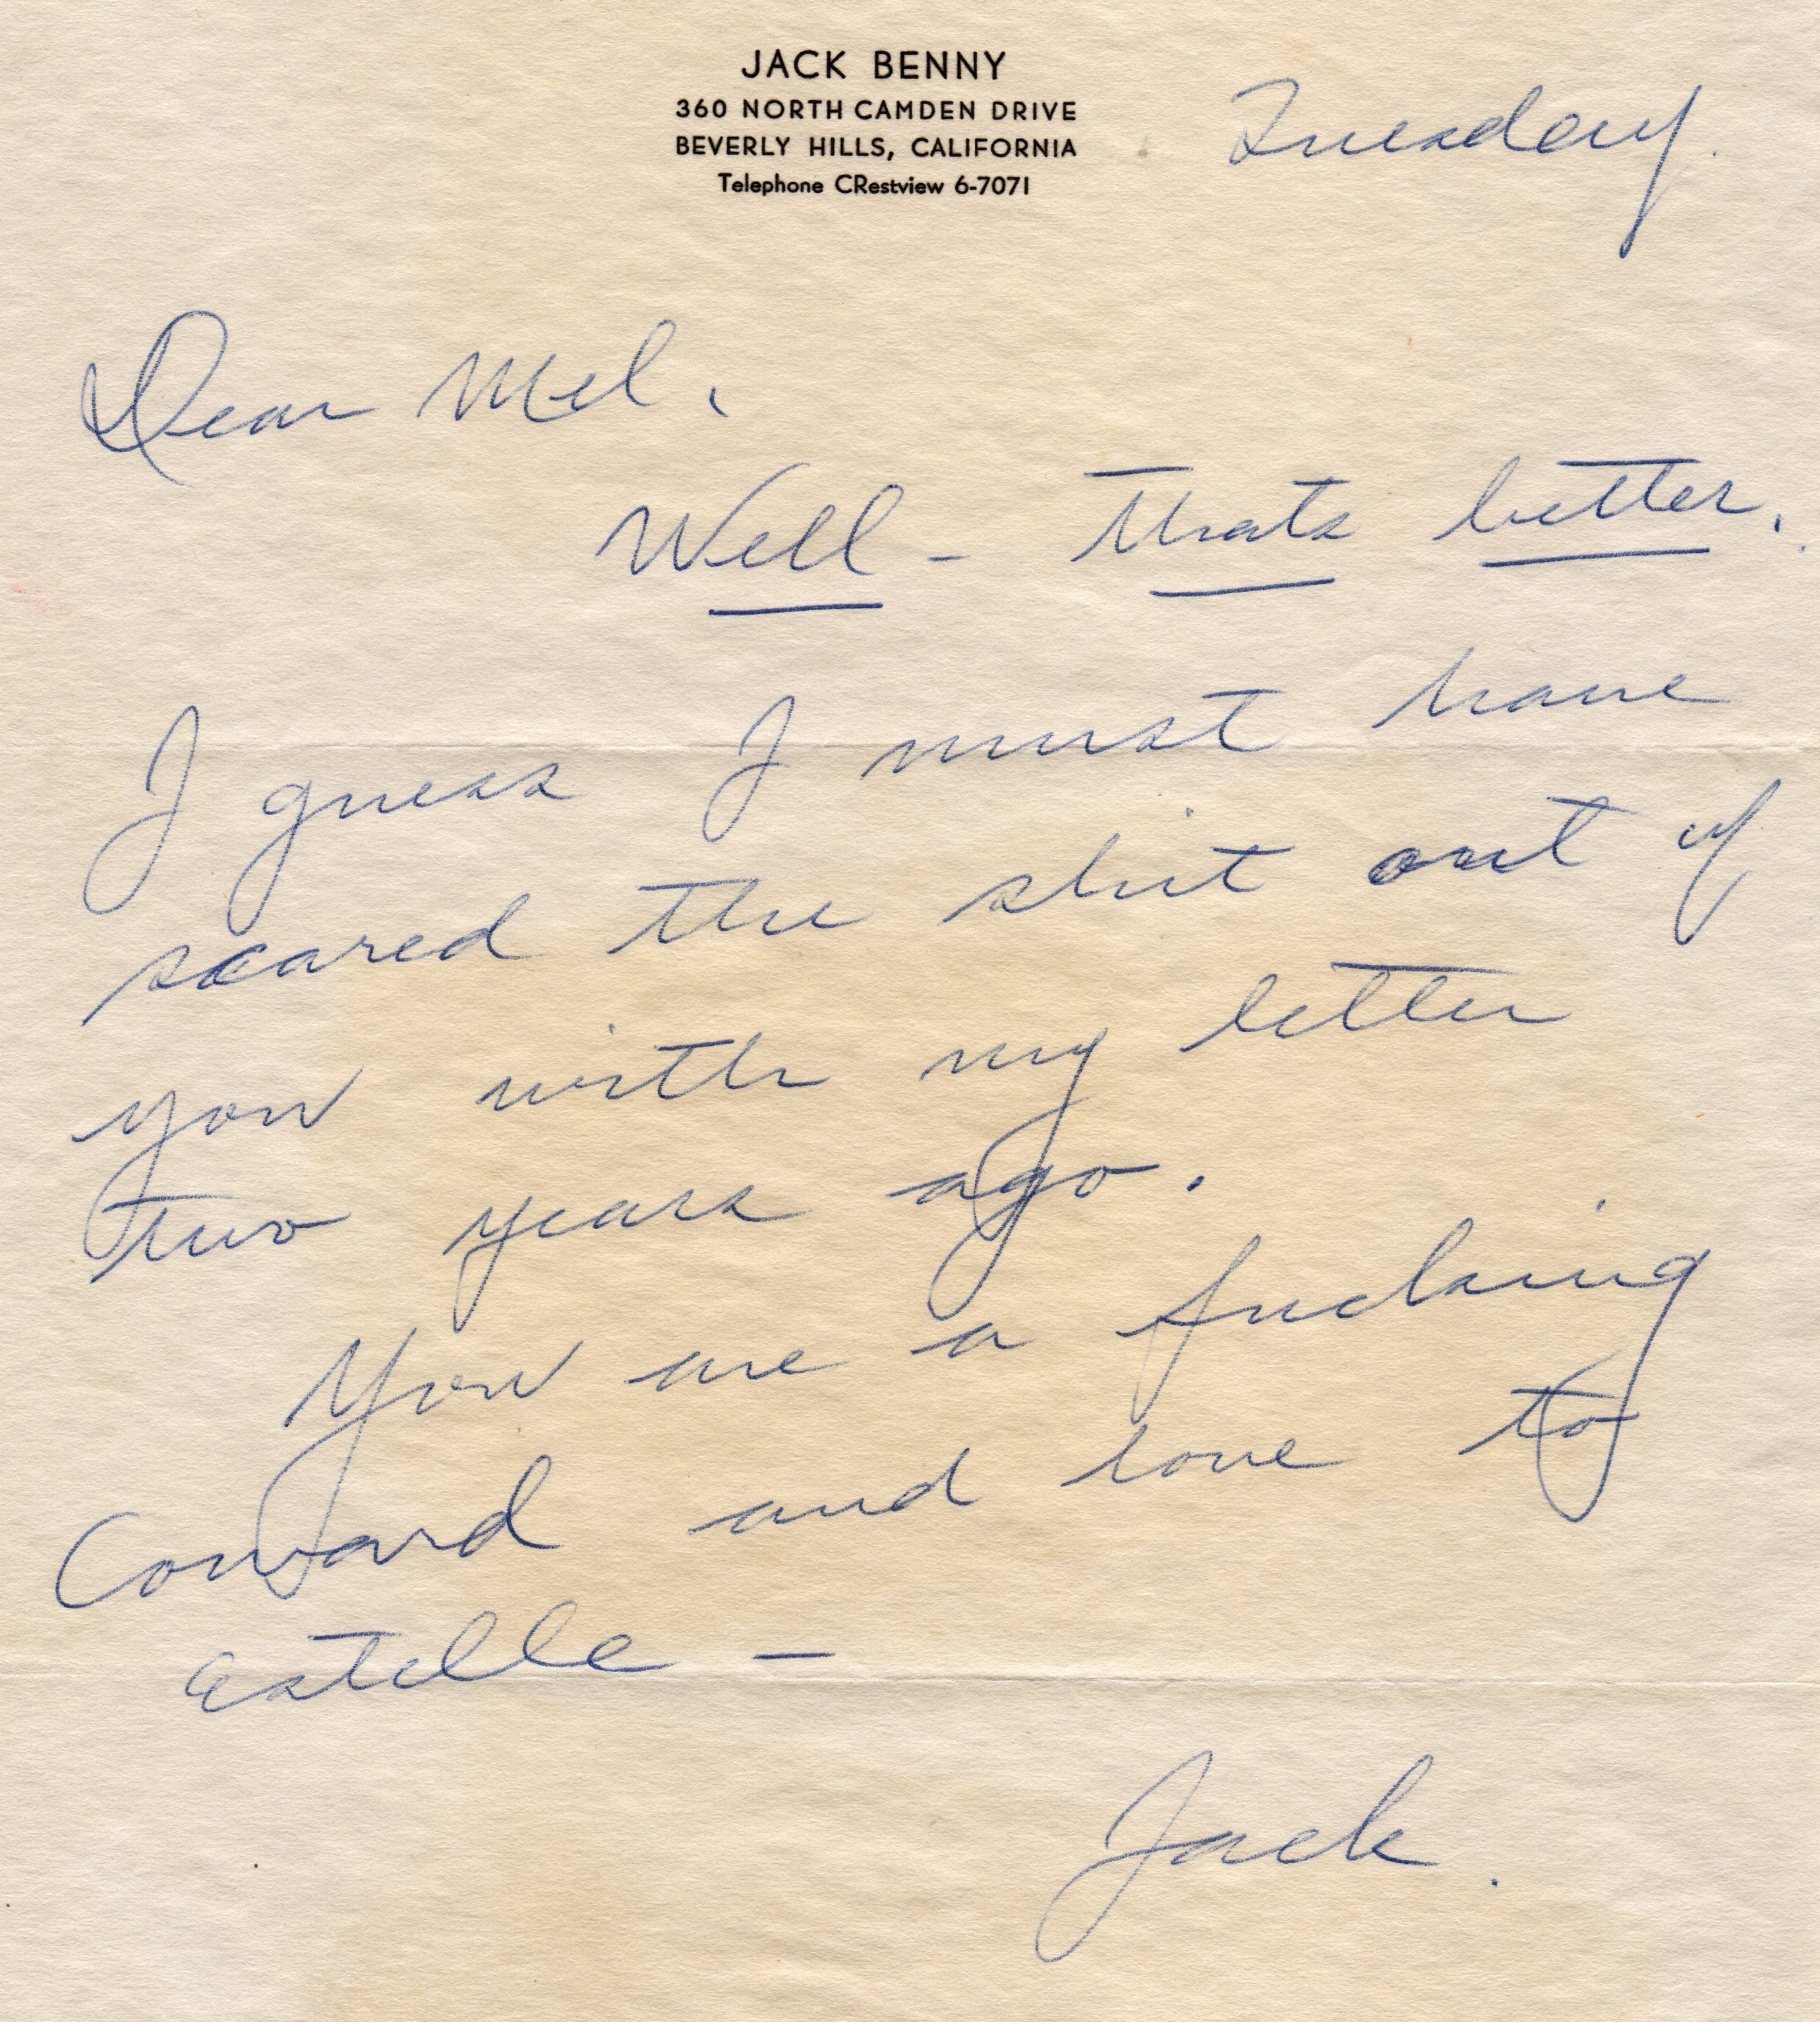 JACK BENNY
360 NORTH CAMDEN DRIVE
BEVERLY HILLS, CALIFORNIA
Telephone CRestview 6-7071
Tuesday.
Dear Mel,
Well - thats better.
I guess I must have
scared the shit out of
you with my letter
two years ago.
You are a fucking
Coward and love to
Estelle -
Jack.